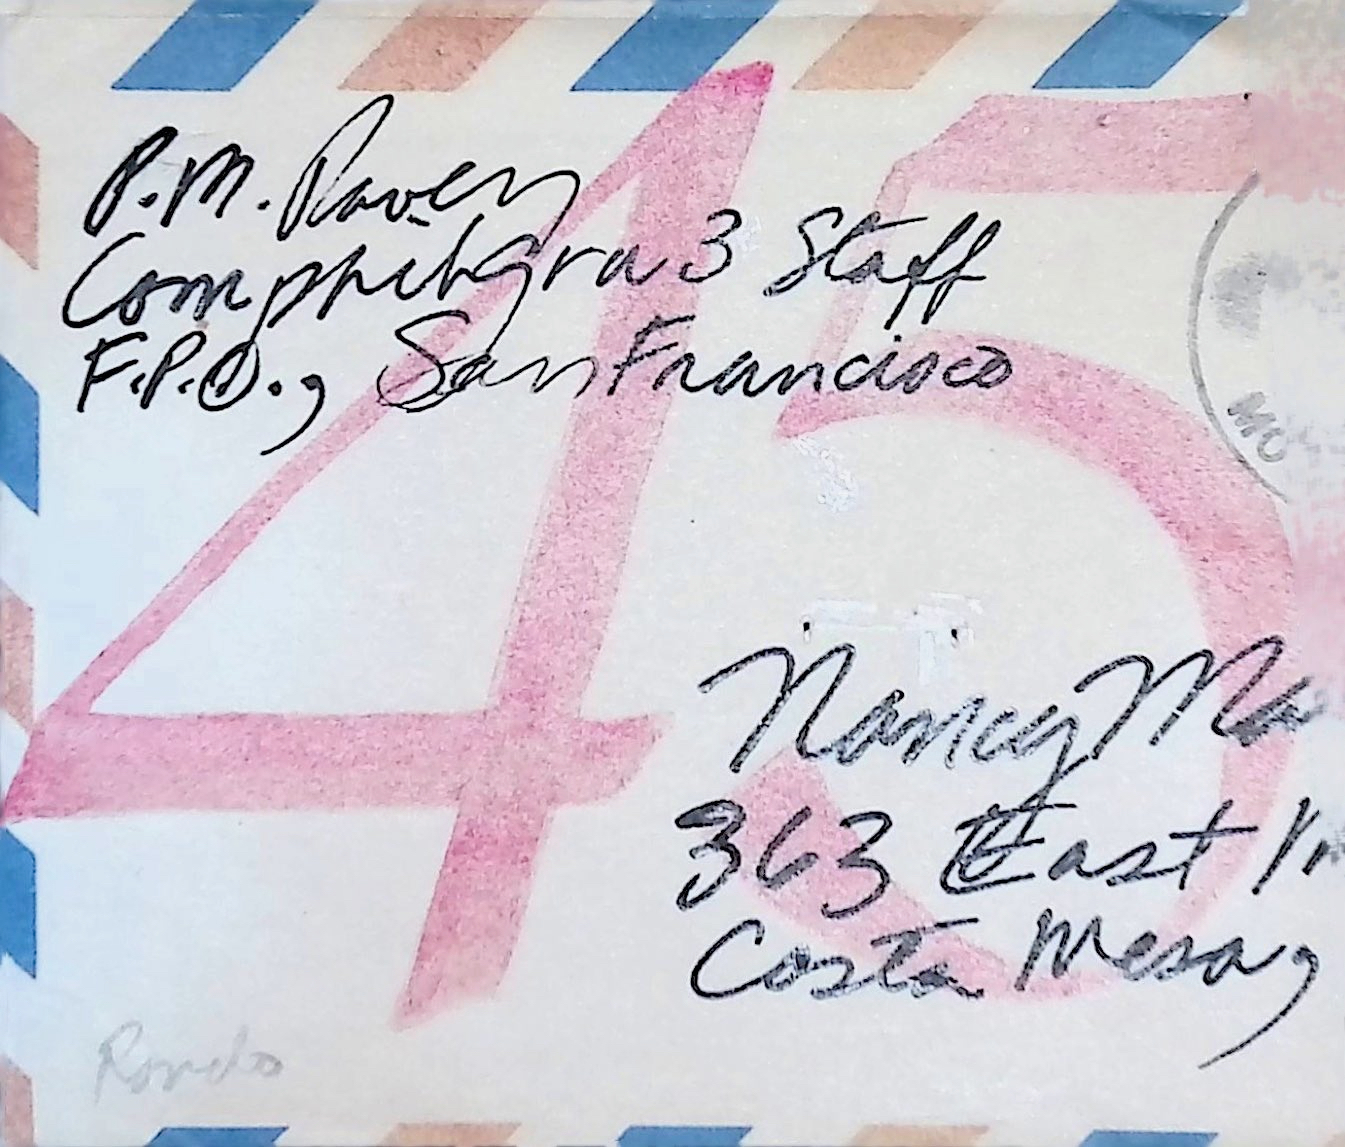 P. M. Raven
Comphibgru 3 Staff
F.P.O., San Francisco
45
Nancy
363 East
Costa Mesa,
Rondo